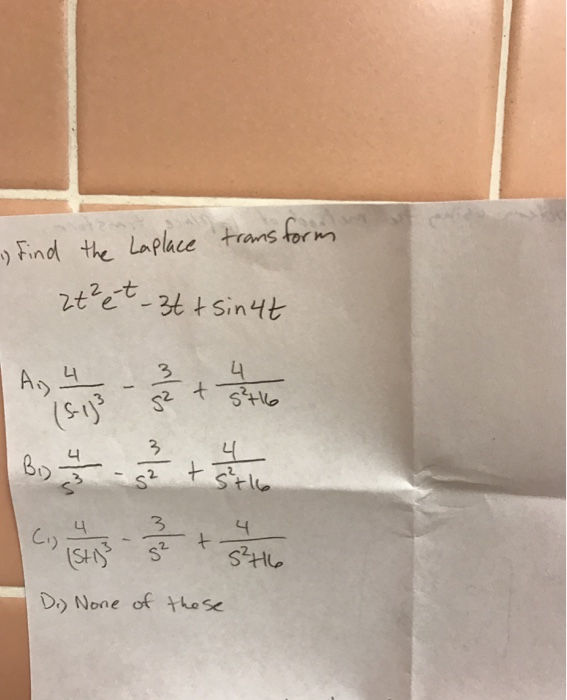 1) Find the Laplace transform
2t²e^-t - 3t + sin4t
A.) 4/(s-1)³ - 3/s² + 4/s²+16
B.) 4/s³ - 3/s² + 4/s²+16
C.) 4/(s+1)³ - 3/s² + 4/s²+16
D.) None of these